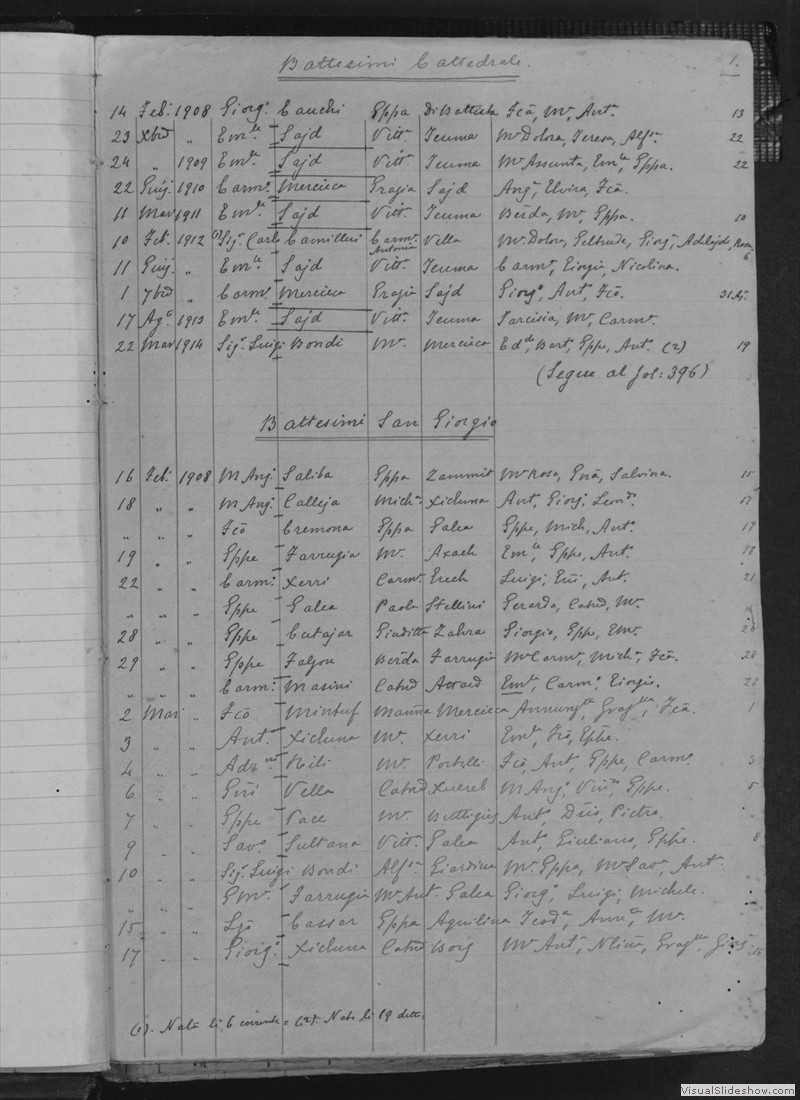 Battesimi Cattedrale. 1.
14 Feb. 1908 Giorg. Cauchi Gppa Di Battista Fcã, Mª, Antª 13
23 Xbre „ Emle Sajd Vittª Teuma Mª Dolora, Teresa, Alfsa 22
24 „ 1909 Emle Sajd Vittª Teuma Mª Assunta, Emla, Gppa. 22
22 Giug. 1910 Carmº Mercieca Grazia Sajd Angª, Elvira, Fcã.
11 Mar 1911 Emle Sajd Vittª Teuma Berda, Mª, Gppa. 10
10 Feb. 1912 (1) Sigr. Carlo Camilleri Carmª Antonia Vella Mª Dolora, Geltrude, Giorgª, Adelajde, Rosa, 6
11 Giug. „ Emle Sajd Vittª Teuma Carmª, Giorgia, Nicolina.
1 7bre „ Carmº Mercieca Grazia Sajd Giorgº, Antº, Fcõ. 31 Ag.
17 Agº 1913 Emle Sajd Vittª Teuma Tarcisia, Mª, Carmª.
22 Mar 1914 Sigr. Luigi Bondi Mª Mercieca Eddo, Bart, Gppe, Antº (2) 19
(Segue al fol: 396)
Battesimi San Giorgio
16 Feb. 1908 M Ang. Saliba Gppa Zammit Mª Rosa, Gnã, Salvina. 15
18 „ „ M Ang. Calleja Michª Xicluna Antº, Giorgº, Leonº. 17
„ „ „ Fcõ Cremona Gppa Galea Gppe, Mich, Antº 17
19 „ „ Gppe Farrugia Mª Axach Emle, Gppe, Antº 18
22 „ „ Carmº Xerri Carmª Grech Luigi, Gni, Antº. 21
„ „ „ Gppe Galea Paola Stellini Gerarda, Catnª, Mª.
28 „ „ Gppe Cutajar Giuditta Zahra Giorgio, Gppe, Emle.
29 „ „ Gppe Falzon Berda Farrugia Mª Carmª, Michª, Fcã. 28
„ „ „ Carmº Masini Catnª Attard Emla, Carmª, Giorgia. 28
2 Mar „ Fcõ Mintuf Mercieca Fcã. 1
3 „ „ Antº Xicluna Mª Xerri
4 „ „ Mª Portelli Fcõ, Antº, Gppe, Carmº 3
6 „ „ Gni Vella Catnª Xuereb M Ang. Gppe. 5
7 „ „ Gppe Pace Mª Buttigieg Antº, Pietro.
9 „ „ Savº Sultana Vittª Galea Antº, Giuliano, Gppe. 8
10 „ „ Sigr. Luigi Bondi Alfsa Giardina Mª Gppa, Mª Savª, Antª
„ „ „ Emle Farrugia Mª Antª Galea Giorgº, Luigi, Michele.
15 „ „ Cassar Gppa Aquilina Teodª, Annª, Mª.
17 „ „ Giorg. Xicluna Catnª Borg Mª Antª,
(1). Nata li 6 corrente = (2). Nato li 19 detto.
VisualSlideshow.com